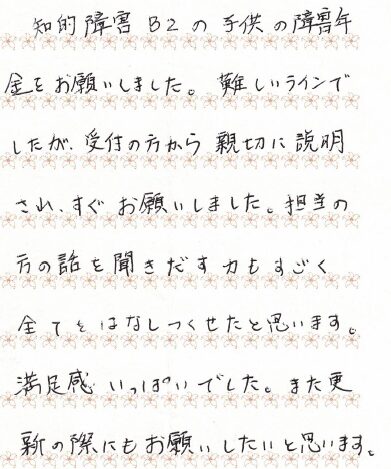 知的障害B2の子供の障害年
金をお願いしました。難しいラインで
したが、受付の方から親切に説明
され、すぐお願いしました。担当の
方の話を聞きだす力もすごく
全てをはなしつくせたと思います。
満足感いっぱいでした。また更
新の際にもお願いしたいと思います。